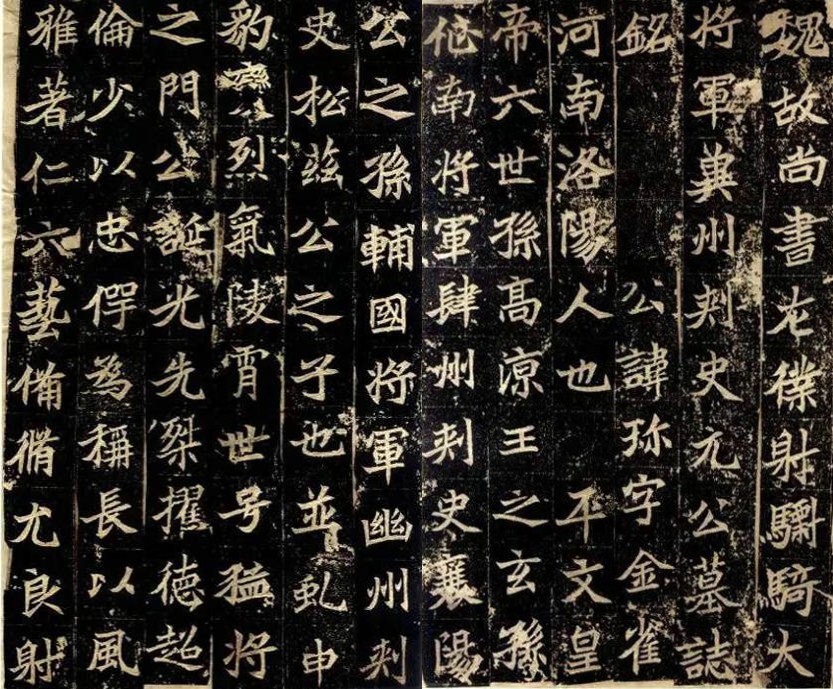 魏故尚書左僕射驃騎大
將軍冀州刾史元公墓誌
銘　公諱珎字金雀
河南洛陽人也　平文皇
帝六世孫高涼王之玄孫
征南將軍肆州刾史襄陽
公之孫輔國將軍幽州刾
史松茲公之子也並虬申
豹變烈氣陵霄世号猛將
之門公誕光先桀擢德超
倫少以忠愕為稱長以風
雅著仁六藝備脩尤良射